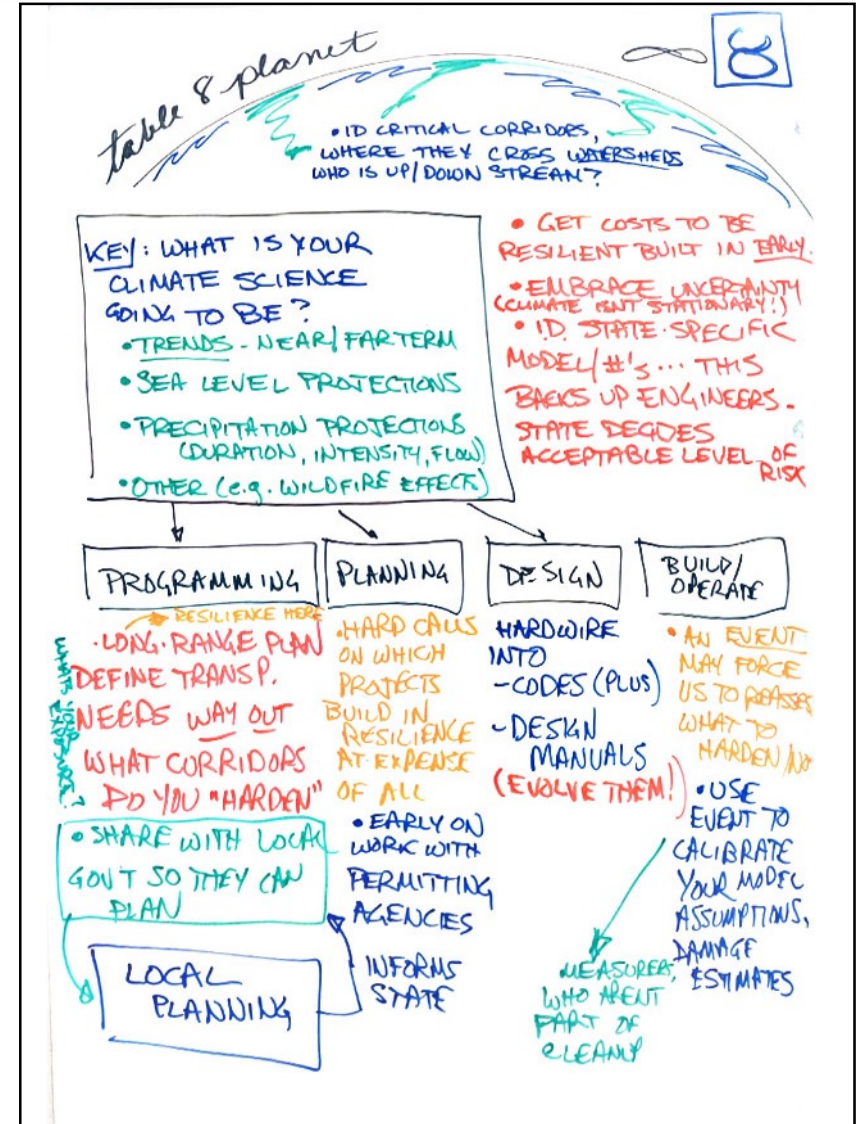 table 8 planet
∞ 8
• ID CRITICAL CORRIDORS,
WHERE THEY CROSS WATERSHEDS
WHO IS UP/DOWN STREAM?
KEY: WHAT IS YOUR
CLIMATE SCIENCE
GOING TO BE?
• TRENDS - NEAR/FAR TERM
• SEA LEVEL PROJECTIONS
• PRECIPITATION PROJECTIONS
(DURATION, INTENSITY, FLOW)
• OTHER (e.g. WILDFIRE EFFECTS)
• GET COSTS TO BE
RESILIENT BUILT IN EARLY.
• EMBRACE UNCERTAINTY
(CLIMATE ISN'T STATIONARY!)
• ID. STATE-SPECIFIC
MODEL/#'s... THIS
BACKS UP ENGINEERS.
STATE DECIDES
ACCEPTABLE LEVEL OF
RISK
PROGRAMMING
RESILIENCE HERE
• LONG-RANGE PLAN
DEFINE TRANSP.
NEEDS WAY OUT
WHAT CORRIDORS
DO YOU "HARDEN"
WHAT'S YOUR EXPOSURE?
• SHARE WITH LOCAL
GOV'T SO THEY CAN
PLAN
LOCAL
PLANNING
PLANNING
• HARD CALLS
ON WHICH
PROJECTS
BUILD IN
RESILIENCE
AT EXPENSE
OF ALL
• EARLY ON
WORK WITH
PERMITTING
AGENCIES
INFORMS
STATE
DESIGN
HARDWIRE
INTO
- CODES (PLUS)
- DESIGN
MANUALS
(EVOLVE THEM!)
BUILD/
OPERATE
• AN EVENT
MAY FORCE
US TO REASSES
WHAT TO
HARDEN/NOT
• USE
EVENT TO
CALIBRATE
YOUR MODEL
ASSUMPTIONS,
DAMAGE
ESTIMATES
MEASURERS,
WHO ARENT
PART OF
CLEANUP